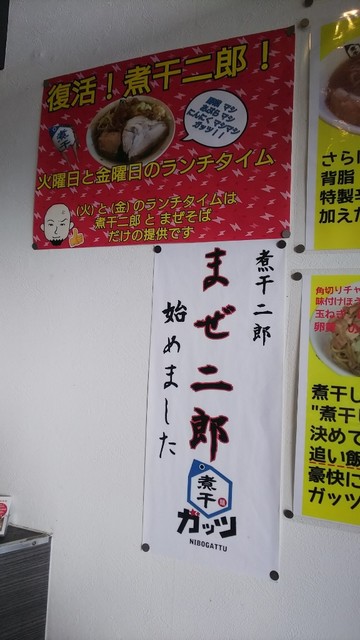 復活！煮干二郎！
野菜 マシ
あぶら マシ
にんにくマシマシ
ガッツ！！
火曜日と金曜日のランチタイム
(火)と(金)のランチタイムは
煮干二郎 と まぜそば
だけの提供です
煮干二郎
まぜ二郎
始めました
煮干
ガッツ
NIBOGATTU
さら
背脂
特製辛
加えた
角切りチャ
味付けほう
玉ねぎ
卵黄
煮干し
"煮干し
決めて
追い飯
豪快に
ガッツ